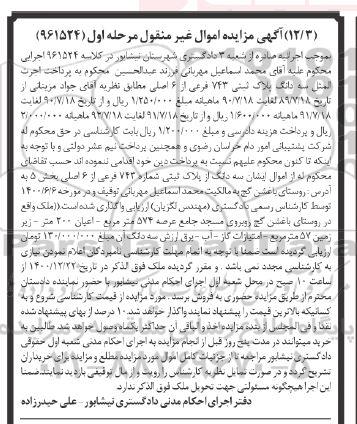 (۱۲/۳) آگهی مزایده اموال غیر منقول مرحله اول (۹۶۱۵۲۴)
بموجب اجرائیه صادره از شعبه ۳ دادگستری شهرستان نیشابور در کلاسه ۹۶۱۵۲۴ اجرایی
محکوم علیه آقای محمد اسماعیل مهربانی فرزند عبدالحسین محکوم به پرداخت اجرت
المثل سه دانگ پلاک ثبتی ۷۴۳ فرعی از ۶ اصلی مطابق نظریه آقای جواد مزینانی از
تاریخ ۸۹/۷/۱۸ لغایت ۹۰/۷/۱۸ ماهیانه مبلغ ۱/۲۵۰/۰۰۰ ریال و از تاریخ ۹۰/۷/۱۸ لغایت
۹۱/۷/۱۸ ماهیانه ۱/۶۰۰/۰۰۰ ریال و از تاریخ ۹۱/۷/۱۸ لغایت ۹۲/۷/۱۸ ماهیانه ۲/۰۰۰/۰۰۰
ریال و پرداخت هزینه دادرسی و مبلغ ۱/۲۰۰/۰۰۰ ریال بابت کارشناسی در حق محکوم له
شرکت پشتیبانی امور دام خراسان رضوی و همچنین پرداخت نیم عشر دولتی و با توجه به
اینکه تا کنون محکوم علیهم نسبت به پرداخت دین خود اقدامی ننموده اند حسب تقاضای
محکوم له از اموال ایشان سه دانگ از پلاک ثبتی شماره ۷۴۳ فرعی از ۶ اصلی بخش ۵ به
آدرس : روستای باغشن گچ به مالکیت محمد اسماعیل مهربانی توقیف و در مورخه ۱۴۰۰/۶/۶
توسط کارشناس رسمی دادگستری (مهندس لگزیان) ارزیابی واگذاری شده است (( ملک واقع
در روستای باغشن گچ روبروی مسجد جامع عرصه ۵۷۴ متر مربع - اعیان ۲۰۰ متر - زیر
زمین ۵۷ متر مربع - امتیازات گاز - آب - برق ارزش سه دانگ آن مبلغ ۱۳۰/۰۰۰/۰۰۰ تومان
ارزیابی گردیده است ضمنا با توجه به اتمام مهلت کارشناسی نامبردگان اعلام نمودن نیازی
به کارشناسی مجدد نمی باشد . و مقرر گردیده ملک فوق الذکر در تاریخ ۱۴۰۰/۱۲/۲۲ از
ساعت ۱۰ صبح در محل شعبه اول اجرای احکام مدنی نیشابور با حضور نماینده دادستان
محترم از طریق مزایده حضوری به فروش برسد . مورد مزایده از قیمت کارشناسی شروع و به
کسانیکه بالاترین قیمت را پیشنهاد نمایند واگذار خواهد شد. ۱۰ درصد از بهای پیشنهاد شده
نقدا و فی المجلس از برنده مزایده اخذ و الباقی آن حداکثر یکماه وصول خواهد شد. طالبین به
خرید میتوانند در مدت پنج روز قبل از انجام مزایده به اجرای احکام مدنی شعبه اول حقوقی
دادگستری نیشابور مراجعه تا از جزئیات کامل اموال مورد مزایده مطلع و مزایده برای خریداران
تشریح گردد و در صورت تمایل نظریه کارشناس را رویت و از مال توقیفی بازدید نمایند. ضمنا
این اجرا هیچگونه مسئولتی جهت تحویل ملک فوق الذکر ندارد.
دفتر اجرای احکام مدنی دادگستری نیشابور - علی حیدرزاده